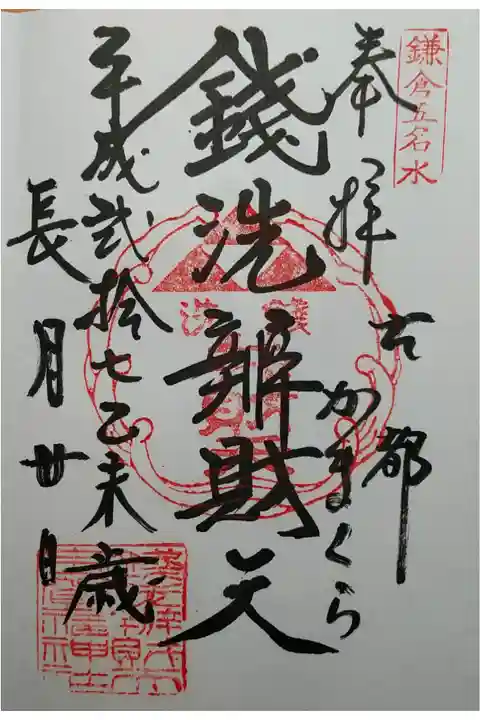 鎌倉五名水
奉拝
古都
かまくら
錢洗辨財天
平成弐拾七乙未歳
長月廿日
錢洗